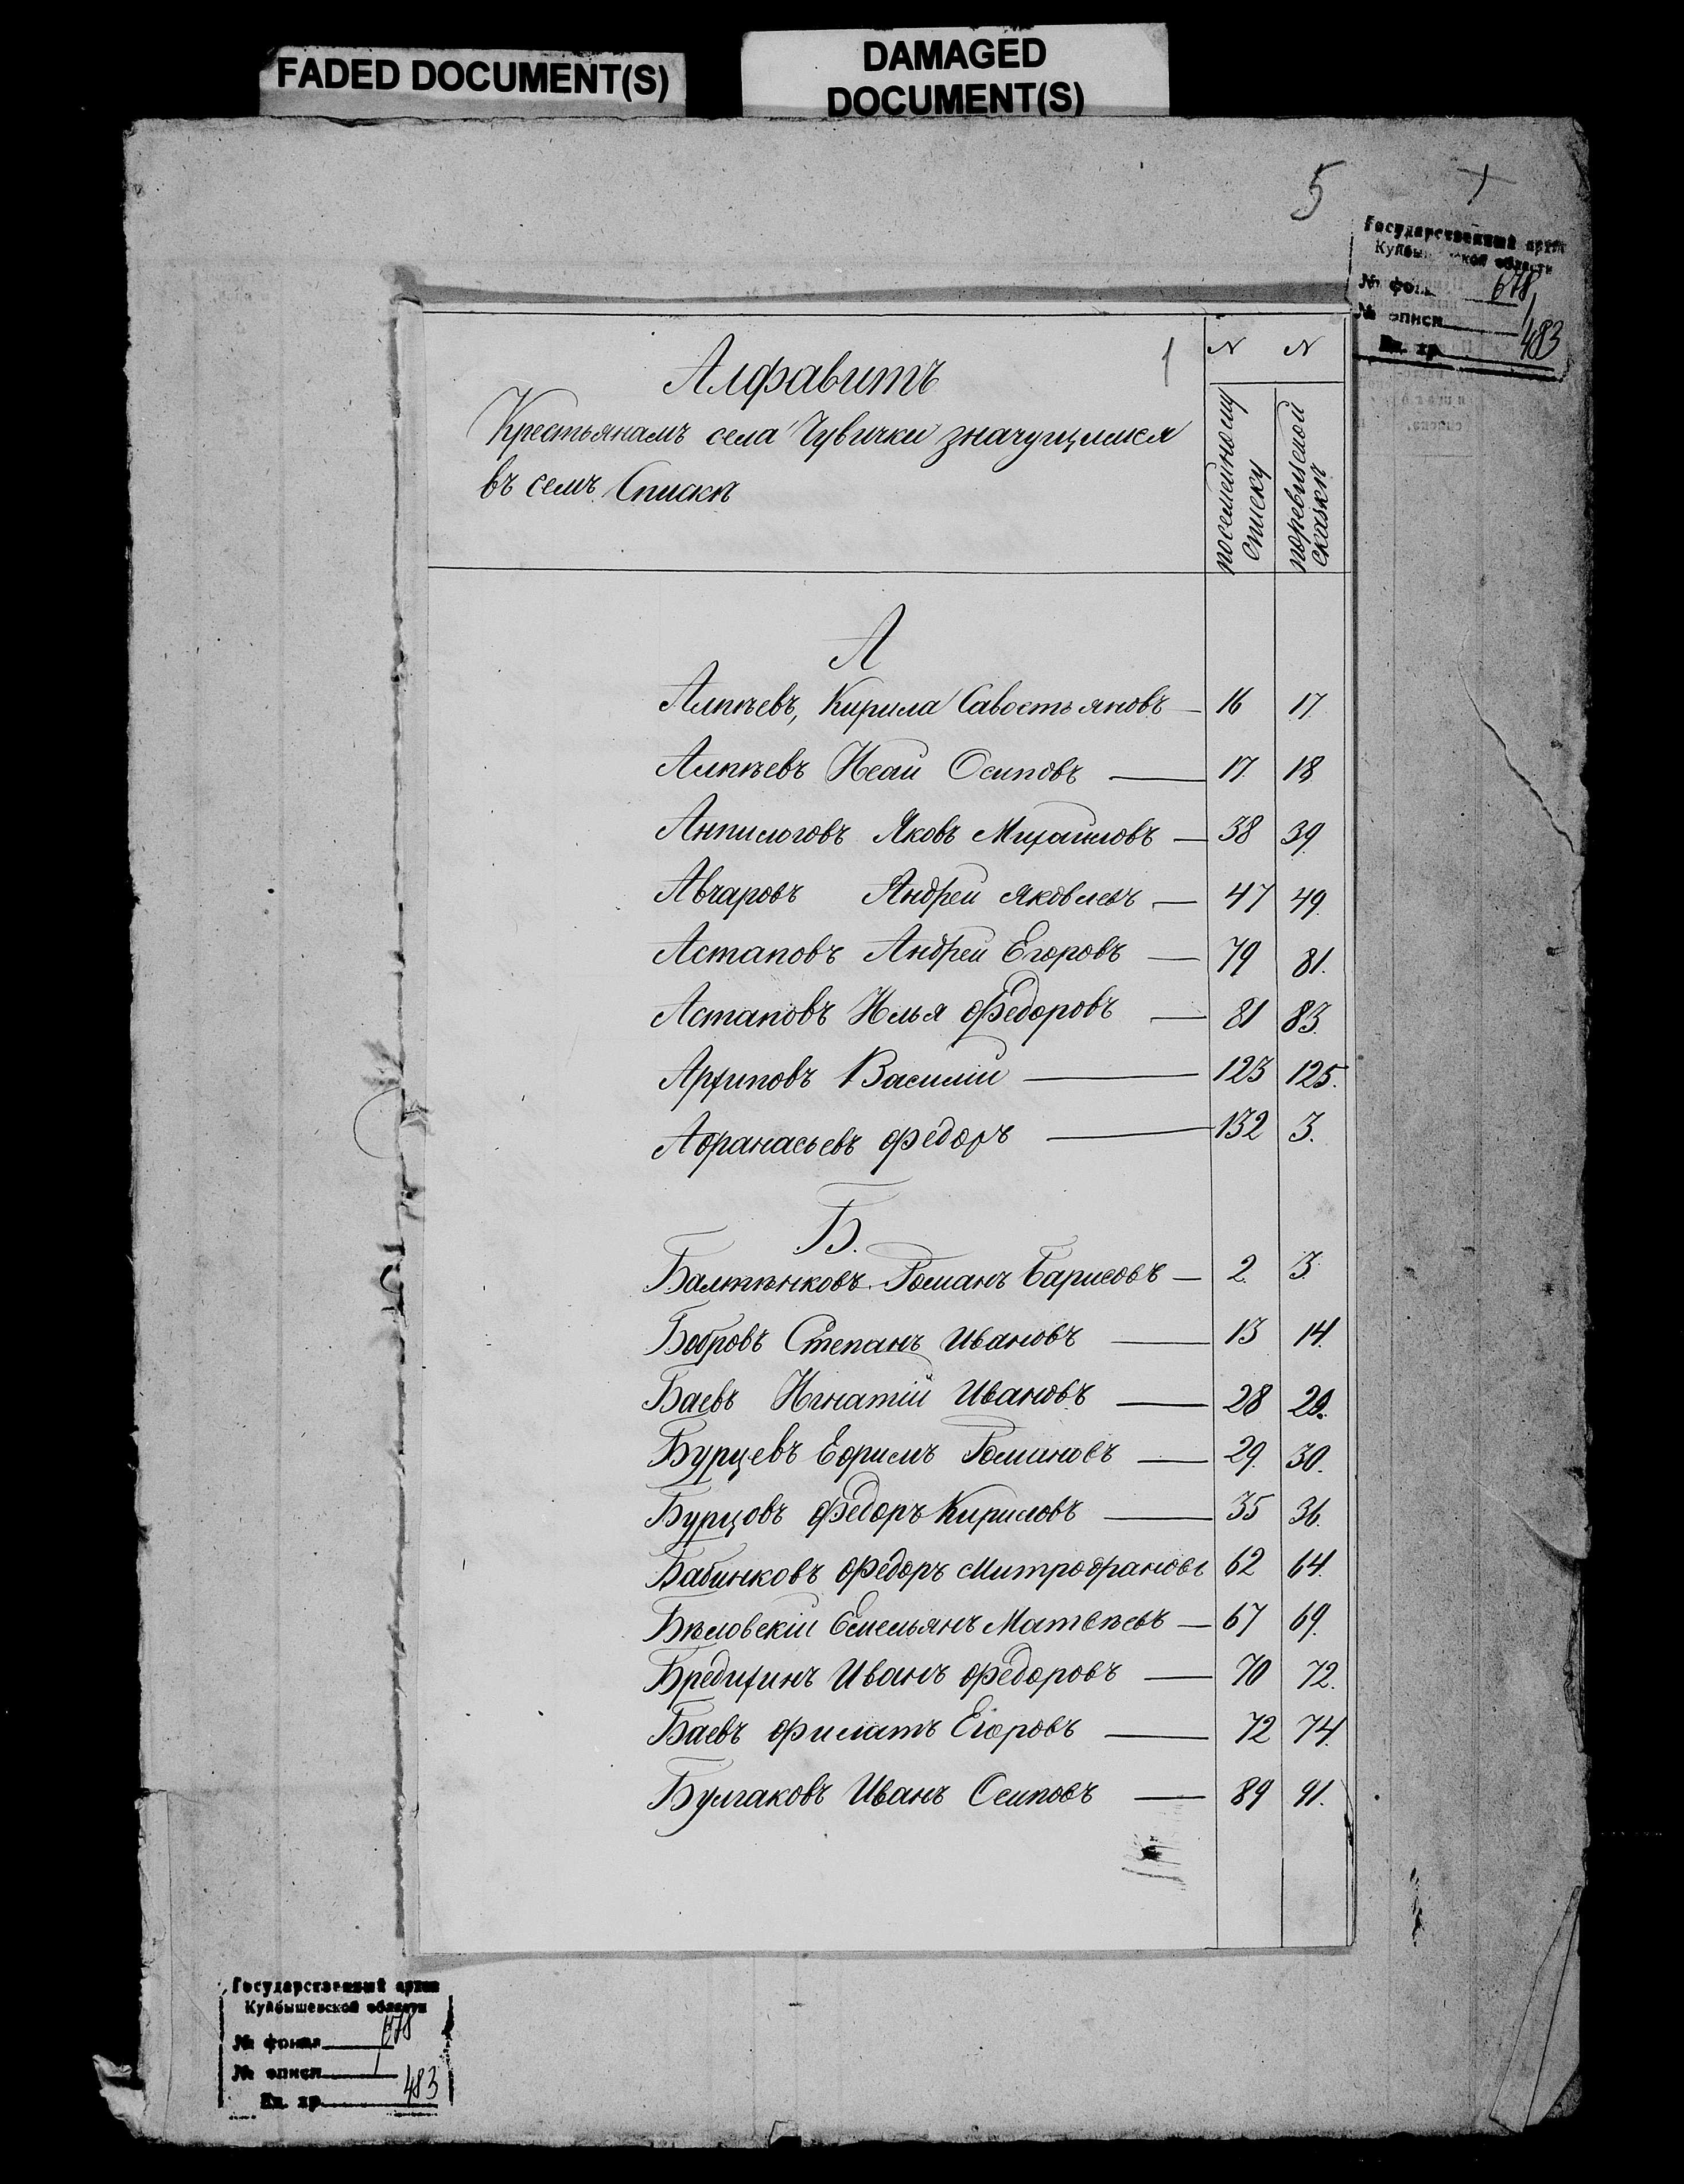 FADED DOCUMENT(S)
DAMAGED
DOCUMENT(S)
5
Государственный архив
Куйбышевской области
№ фонда 678
№ описи 1
Ед. хр. 483
1
Алфавитъ
Крестьянамъ села Чувички значущимся
въ семъ Спискѣ
N N
посемейному списку
поревизской сказкѣ
А
Алпѣевъ, Кирила Савостьяновъ — 16 17.
Алпѣевъ Исай Осиповъ — 17. 18
Анпилоговъ Яковъ Михайловъ — 38 39.
Авчаровъ Андрей Яковлевъ — 47 49.
Астаповъ Андрей Егоровъ — 79 81.
Астаповъ Илья Федоровъ — 81 83.
Архиповъ Василий — 123 125.
Афанасьевъ Федоръ — 132 3.
Б.
Балтѣнковъ Романъ Барисовъ — 2. 3.
Бобровъ Степанъ Ивановъ — 13 14.
Баевъ Игнатій Ивановъ — 28 29.
Бурцевъ Ефимъ Романовъ — 29. 30.
Бурцовъ Федоръ Кириловъ — 35 36.
Бабинковъ Федоръ Митрофановъ 62 64.
Бѣловскій Емельянъ Матвѣевъ — 67 69.
Бредихинъ Иванъ Федоровъ — 70 72.
Баевъ Филатъ Егоровъ — 72 74.
Булгаковъ Иванъ Осиповъ — 89 91.
Государственный архив
Куйбышевской области
№ фонда 678
№ описи 1
Ед. хр. 483